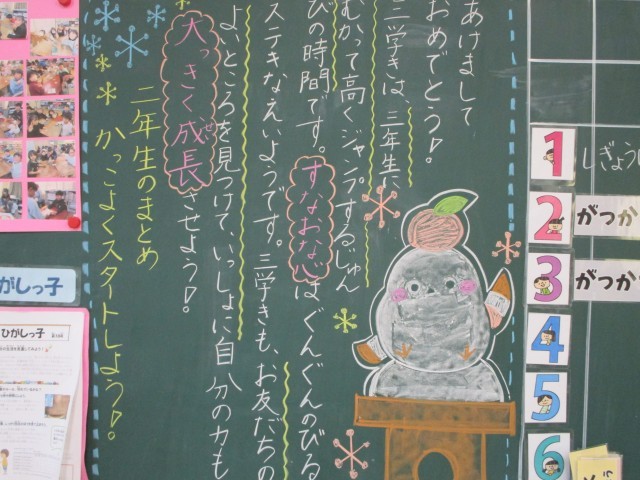 あけまして
おめでとう!
三学きは、三年生に
むかって高くジャンプするじゅん
びの時間です。すなおな心は ぐんぐんのびる
ステキなえいようです。三学きも、お友だちの
よいところを見つけて、いっしょに自分の力も
大っきく成長させよう!
二年生のまとめ
かっこよくスタートしよう!
1
しぎょう
2
がつか
3
がつか
4
5
6
がしっ子
ひがしっ子